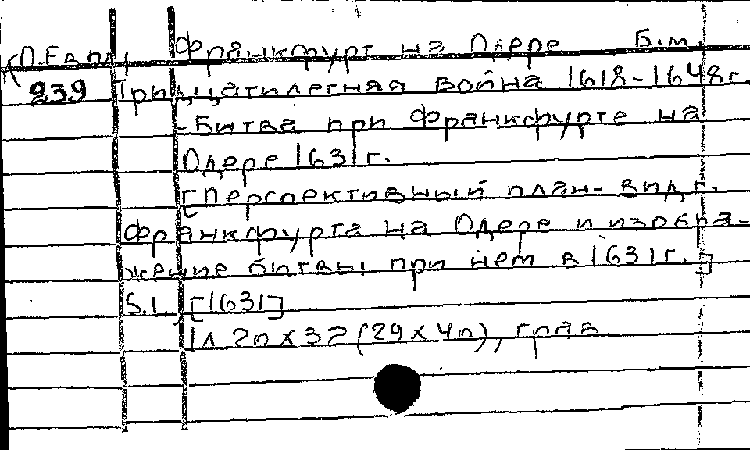 Франкфурт на Одере Б.м.
239 Тридцатилетняя война 1618-1648г
- Битва при Франкфурте на
Одере 1631г.
[Перспективный план-вид г.
Франкфурта на Одере и изобра-
жение битвы при нем в 1631г.]
S.l [1631]
1л 20х32 (29х40), грав